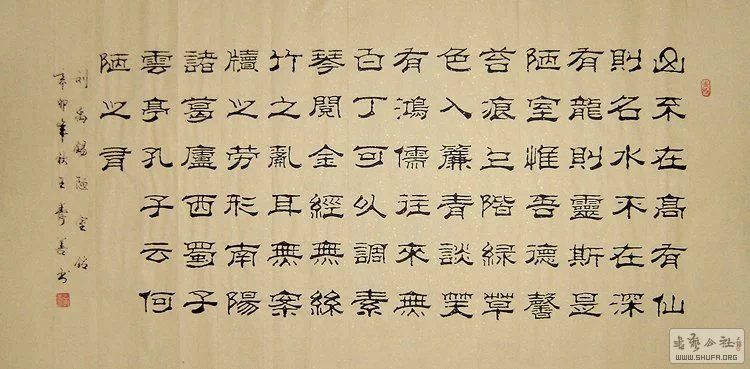 山不在高有仙
則名水不在深
有龍則靈斯是
陋室惟吾德馨
苔痕上階緑草
色入簾青談笑
有鴻儒往來無
百丁可以調素
琴閱金經無絲
竹之亂耳無案
牘之勞形南陽
諸葛廬西蜀子
雲亭孔子云何
陋之有
刘禹錫陋室铭
辛卯年秋王壽善书
书藝公社
WWW.SHUFA.ORG